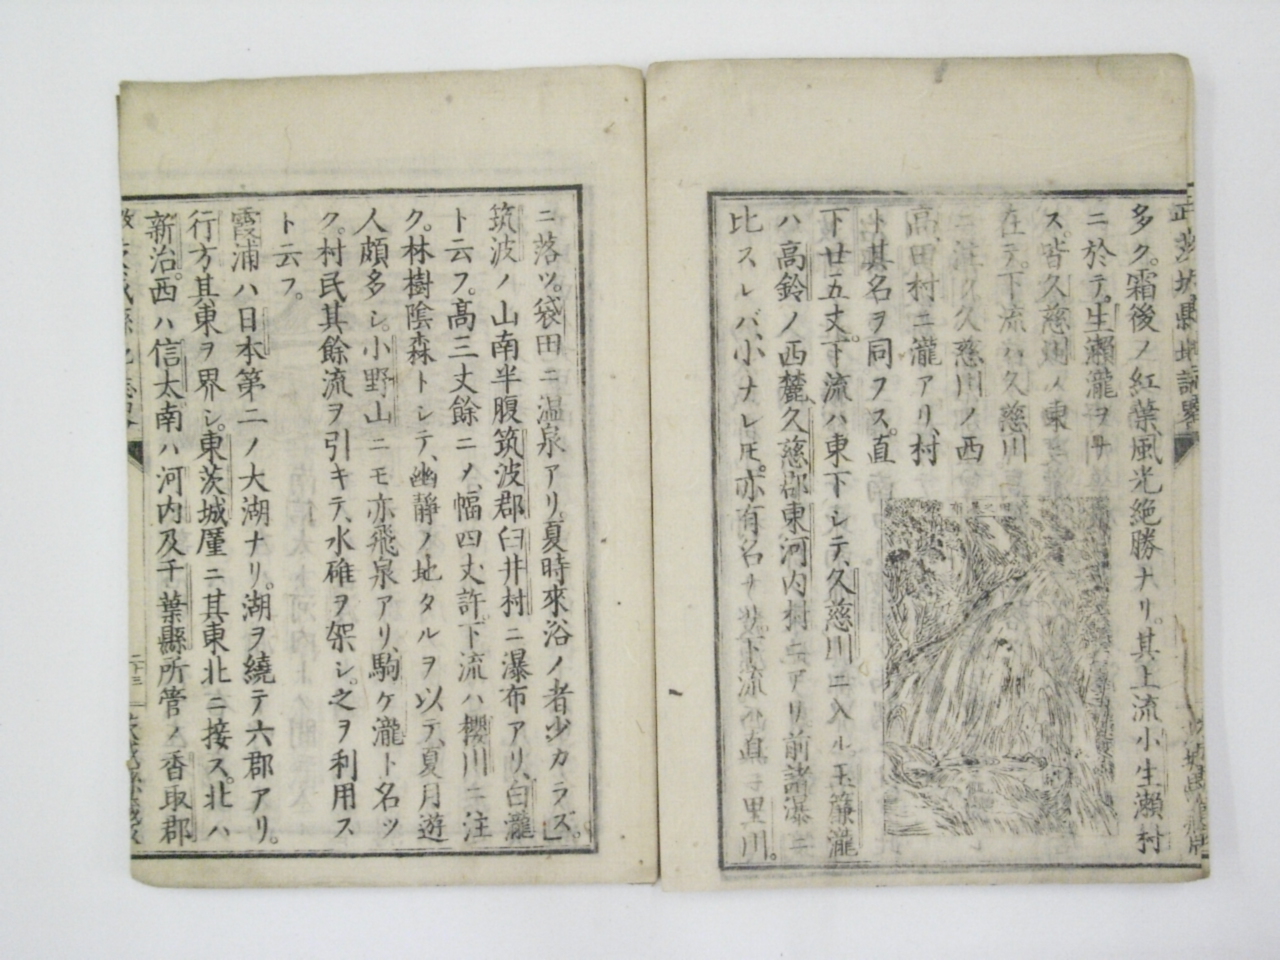 多ク。霜後ノ紅葉風光絶勝ナリ。其上流小生瀬村
ニ於テ。生瀬瀧ヲ
ス。皆久慈川ノ東
在テ。下流ハ久慈川
ニ注ク久慈川ノ西
高田村ニ瀧アリ、村
ト其名ヲ同フス。直
下廿五丈。下流ハ東下シテ、久慈川ニ入ル。玉簾瀧
ハ高鈴ノ西麓久慈郡東河内村ニアリ前諸瀑ニ
比スレバ、小ナレ𪜈。亦有名ナリ。下流ハ直ニ里川。
ニ落ツ。袋田ニ温泉アリ。夏時來浴ノ者少カラズ。
筑波ノ山南半腹筑波郡臼井村ニ瀑布アリ、白瀧
ト云フ。高三丈餘ニメ、幅四丈許。下流ハ櫻川ニ注
ク。林樹陰森トシテ、幽靜ノ地タルヲ以テ、夏月遊
人頗多シ。小野山ニモ亦飛泉アリ、駒ケ瀧ト名ツ
ク。村民其餘流ヲ引キテ、水碓ヲ架シ。之ヲ利用ス
ト云フ。
霞浦ハ日本第二ノ大湖ナリ。湖ヲ繞テ六郡アリ。
行方其東ヲ界シ。東茨城厪ニ其東北ニ接ス。北ハ
新治。西ハ信太南ハ河内及千葉縣所管ノ香取郡